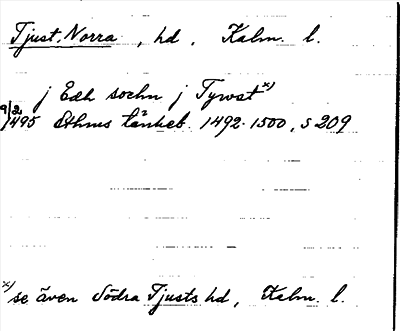 Tjust, Norra, hd, Kalm. l.
j Edh sochn j Tywst x)
9/2 1495 Sthms tänkeb. 1492-1500, s 209
x) se även Södra Tjusts hd, Kalm. l.